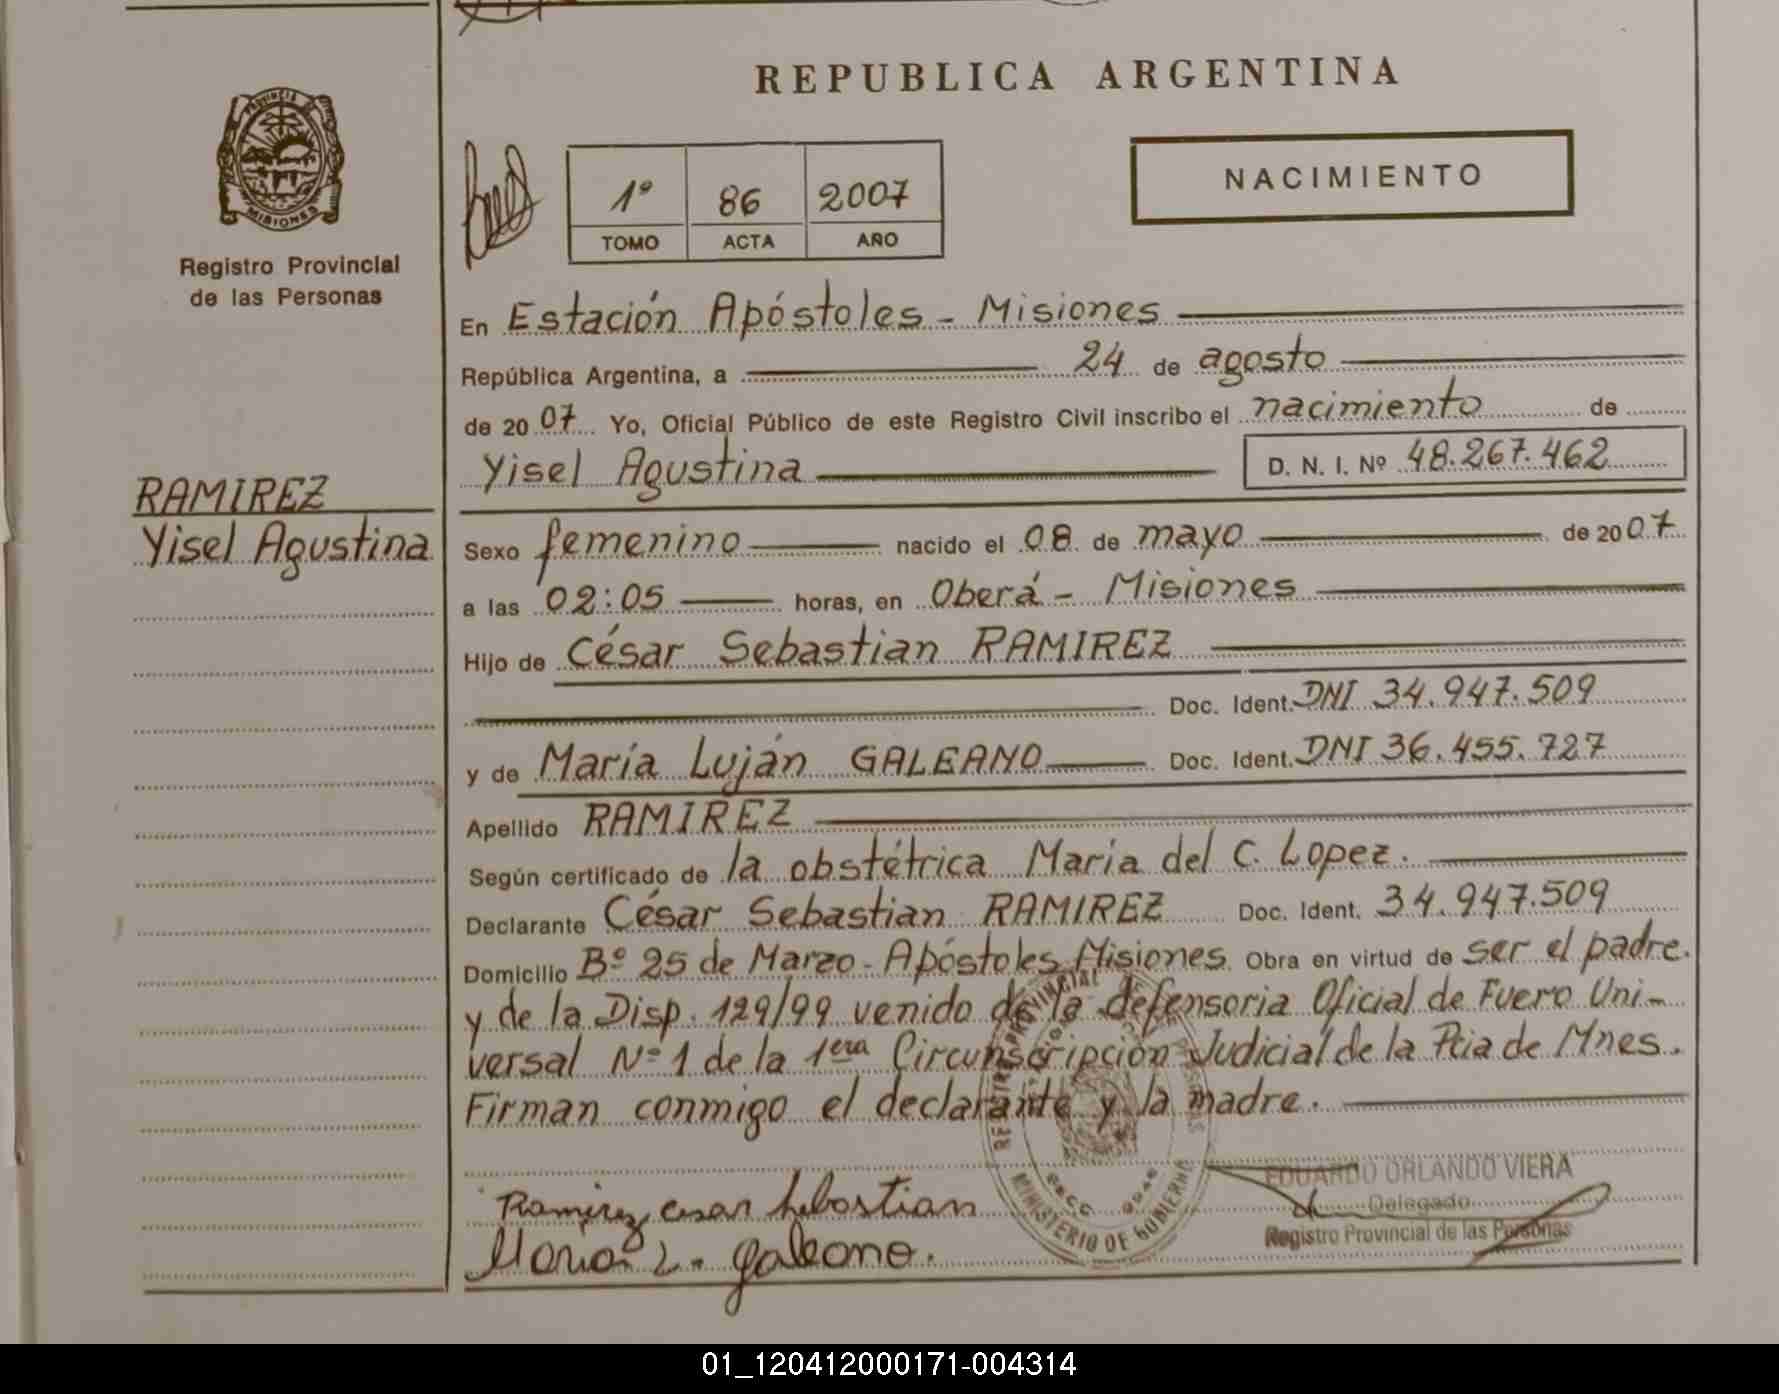 REPUBLICA ARGENTINA
PROVINCIA DE
MISIONES
Registro Provincial
de las Personas
1º 86 2007
TOMO ACTA AÑO
NACIMIENTO
RAMIREZ
Yisel Agustina
En Estación Apóstoles - Misiones
República Argentina, a 24 de agosto
de 2007 Yo, Oficial Público de este Registro Civil inscribo el nacimiento de
Yisel Agustina D. N. I. Nº 48.267.462
Sexo femenino nacido el 08 de mayo de 2007
a las 02:05 horas, en Oberá - Misiones
Hijo de César Sebastian RAMIREZ
Doc. Ident. DNI 34.947.509
y de María Luján GALEANO Doc. Ident. DNI 36.455.727
Apellido RAMIREZ
Según certificado de la obstétrica María del C. Lopez.
Declarante César Sebastian RAMIREZ Doc. Ident. 34.947.509
Domicilio Bº 25 de Marzo - Apóstoles Misiones Obra en virtud de ser el padre.
y de la Disp. 129/99 venido de la defensoria Oficial de Fuero Uni-
versal Nº 1 de la 1era Circunscripción Judicial de la Pcia de Mnes.
Firman conmigo el declarante y la madre.
Ramirez cesar Sebastian
Maria L. galeano.
MINISTERIO DE GOBIERNO
EDUARDO ORLANDO VIERA
Delegado
Registro Provincial de las Personas
01_120412000171-004314